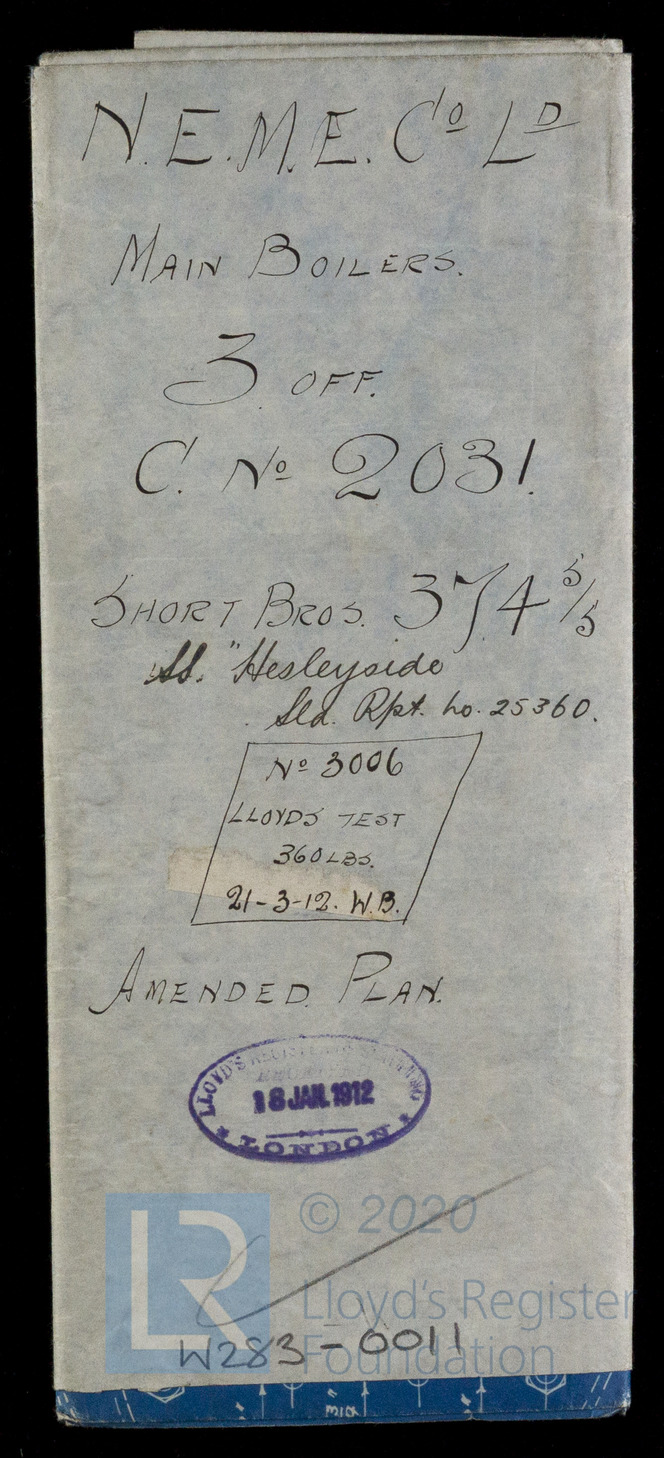 N.E.M.E. Cº Lᴰ
MAIN BOILERS.
3 OFF.
C. Nº 2031.
SHORT BROS. 374 5/5
SS. "Hesleyside
Sld. Rpt. no. 25360.
Nº 3006
LLOYDS TEST
360 LBS.
21-3-12. W.B.
AMENDED PLAN.
LLOYD'S REGISTER OF SHIPPING
18 JAN. 1912
LONDON
LR
© 2020
Lloyd's Register
Foundation
W283-0011